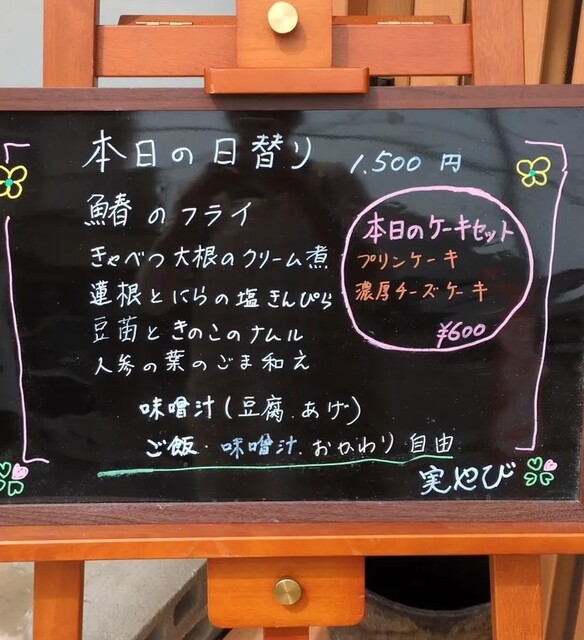 本日の日替り 1,500 円
鰆のフライ
きゃべつ大根のクリーム煮
蓮根とにらの塩きんぴら
豆苗ときのこのナムル
人参の葉のごま和え
味噌汁(豆腐.あげ)
ご飯・味噌汁.おかわり自由
実やび
本日のケーキセット
プリンケーキ
濃厚チーズケーキ
¥600